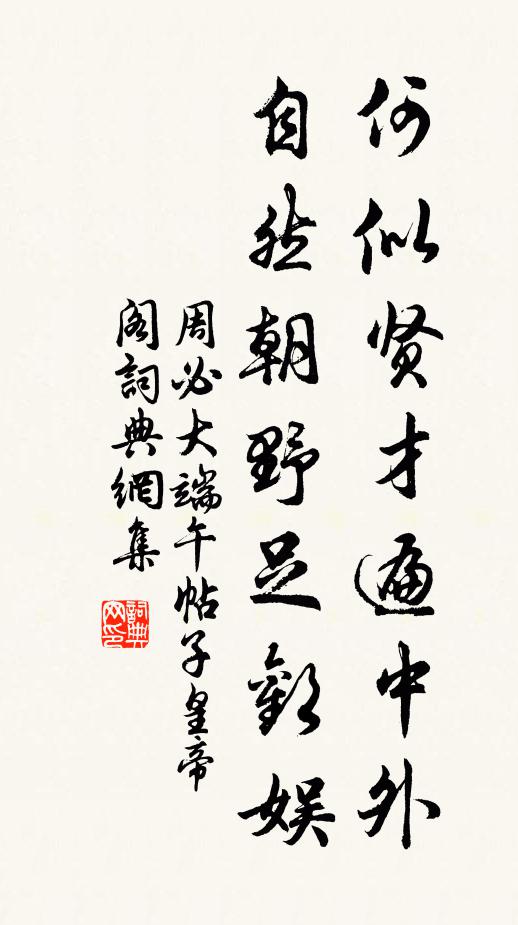 何似贤才遍中外
自然朝野足歡娱
周必大端午帖子皇帝
阁詞典網集
詞典网印